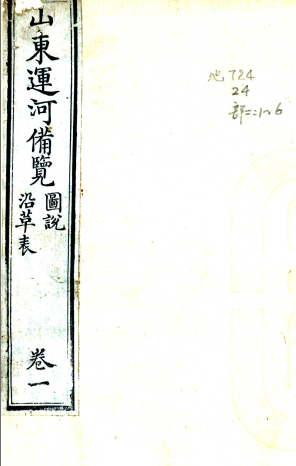 山東運河備覽
圖說
沿革表
卷一
地 724
24